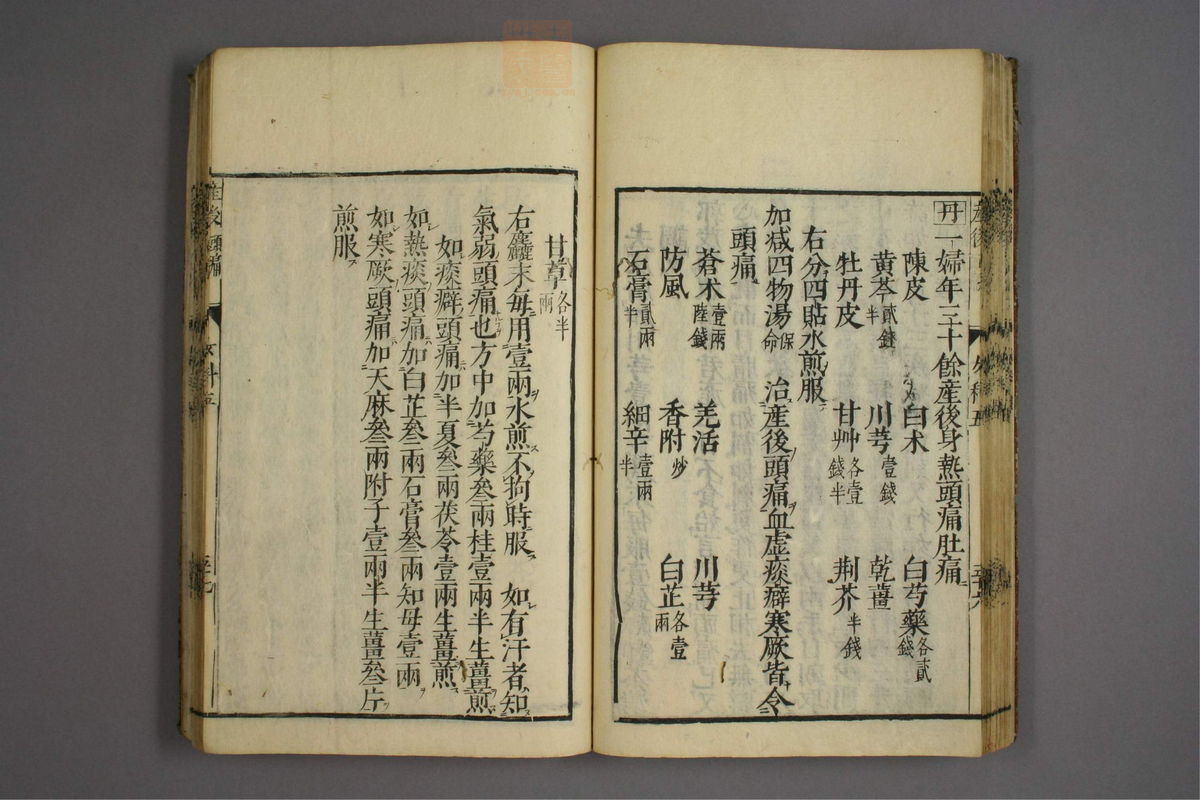 丹一婦年三十餘產後身熱頭痛肚痛
陳皮 白朮 白芍藥各貳錢
黃芩貳錢半 川芎壹錢 乾薑
牡丹皮 甘艸各壹錢半 荆芥半錢
右分四貼水煎服
加减四物湯保命 治產後頭痛血虛痰癖寒厥皆令
頭痛
蒼朮壹兩陸錢 羌活 川芎
防風 香附炒 白芷各壹兩
石膏貳兩半 細辛壹兩半
甘草各半兩
右麤末每用壹兩水煎不狗時服 如有汗者知
氣弱頭痛也方中加芍藥叄兩桂壹兩半生薑煎
如痰癖頭痛加半夏叄兩茯苓壹兩生薑煎
如熱痰頭痛加白芷叄兩石膏叄兩知毋壹兩
如寒厥頭痛加天麻叄兩附子壹兩半生薑叄片
煎服
頭痛